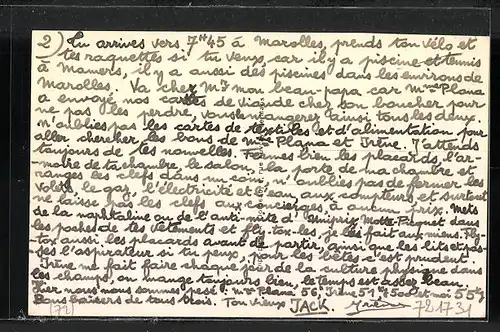 2) Tu arrives vers 7H45 à Marolles, prends ton vélo et
tes raquettes si tu veux, car il y a piscine et tennis
à Mamers, il y a aussi des piscines dans les environs de
Marolles. Va chez Mr mon beau-papa car Mme Plana
a envoyé nos cartes de viande chez son boucher pour
ne pas les perdre, vous mangerez ainsi tous les deux.
N'oublies pas les cartes de textiles et d'alimentation pour
aller chercher les bons de Mme Plana et Irène. J'attends
toujours de tes nouvelles. Fermes bien les placards, l'ar-
moire de ta chambre, le salon, la porte de ma chambre et
ranges les clefs dans un coin, n'oublies pas de fermer les
volets, le gaz, l'électricité et l'eau, aux compteurs, et surtout
ne laisse pas les clefs aux concierges à aucun prix. Mets
de la naphtaline ou de l'anti-mite d'Uniprix Motte-Picquet dans
les poches de tes vêtements et fly-tox-les, je l'ai fait aux miens. Fly-
tox aussi les placards avant de partir, ainsi que les lits et pas-
ses l'aspirateur si tu peux, pour les bêtes c'est prudent.
Irène me fait faire chaque jour de la culture physique dans
les champs, on mange toujours bien, le temps est assez beau.
Hier nous nous sommes pesé: Mme Plana 56, Irène 51,500 et moi 55 kg
Bons baisers de tous trois. Ton vieux JACK. Irène
(72) 721731